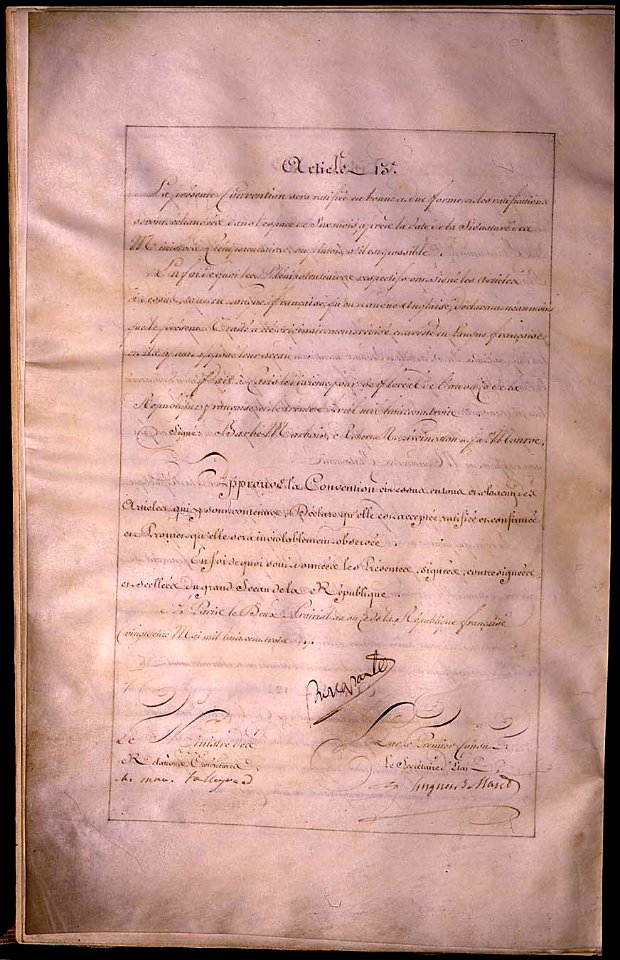 Article 13.e
La présente Convention sera ratifiée en bonne & due forme et les ratifications
seront échangées dans l'espace de Six mois, après la date de la Signature des
Ministres Plénipotentiaires, ou plutôt, s'il est possible.
En foi de quoi les Plénipotentiaires respectifs ont signé les Articles
ci dessus, tant en langue française, qu'en langue anglaise, déclarant néanmoins
que le présent Traité a été originairement rédigé et arrêté en langue française,
et ils y ont apposé leur sceau.
fait à Paris le dixième jour de floréal de l'an onze de la
République française et le trente Avril mil huit cent trois.
Signé: Barbé Marbois, Robert R. Livingston & Ja.s Monroe.
Approuve la Convention ci dessus en tous et chacun des
Articles qui y sont contenus; Déclare qu'elle est acceptée, ratifiée et confirmée
et Promet qu'elle sera inviolablement observée.
En foi de quoi sont données les Présentes, signées, contresignées
et scellées du grand Sceau de la République.
à Paris le Deux Prairial an onze de la République française
(vingt deux Mai mil huit cent trois).
Bonaparte
Le Ministre des Par le Premier Consul
Relations Extérieures, Le Secrétaire d'Etat
ch. mau. Talleyrand Hugues B. Maret